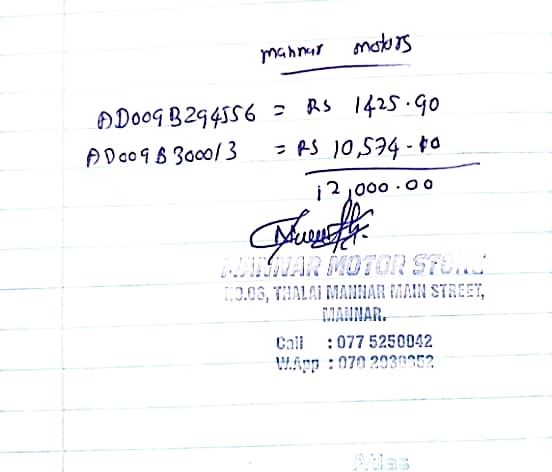 mannar motors
AD009B294556 = RS 1425.90
AD009B300013 = RS 10,574-10
12,000.00
MANNAR MOTOR STORE
NO.06, THALAI MANNAR MAIN STREET,
MANNAR.
Call : 077 5250042
W.App : 070 2030352
Atlas